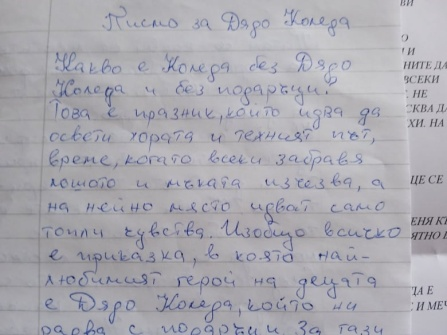 Писмо за Дядо Коледа
Какво е Коледа без Дядо
Коледа и без подаръци?
Това е празник, който идва да
освети хората и техният път,
време, когато всеки забравя
лошото и мъката изчезва, а
на нейно място идват само
топли чувства. Изобщо всичко
е приказка, в която най-
любимият герой на децата
е Дядо Коледа, който ни
радва с подаръци. За тази
ВИ
О
И И
НИТЕ ДА
ВСЕКИ
НЕ
СКВА Д
ХИ. НА
ЩЕ СЕ
ЕНЯ К
ЯТНО
ДА Е
С И МЕЧ